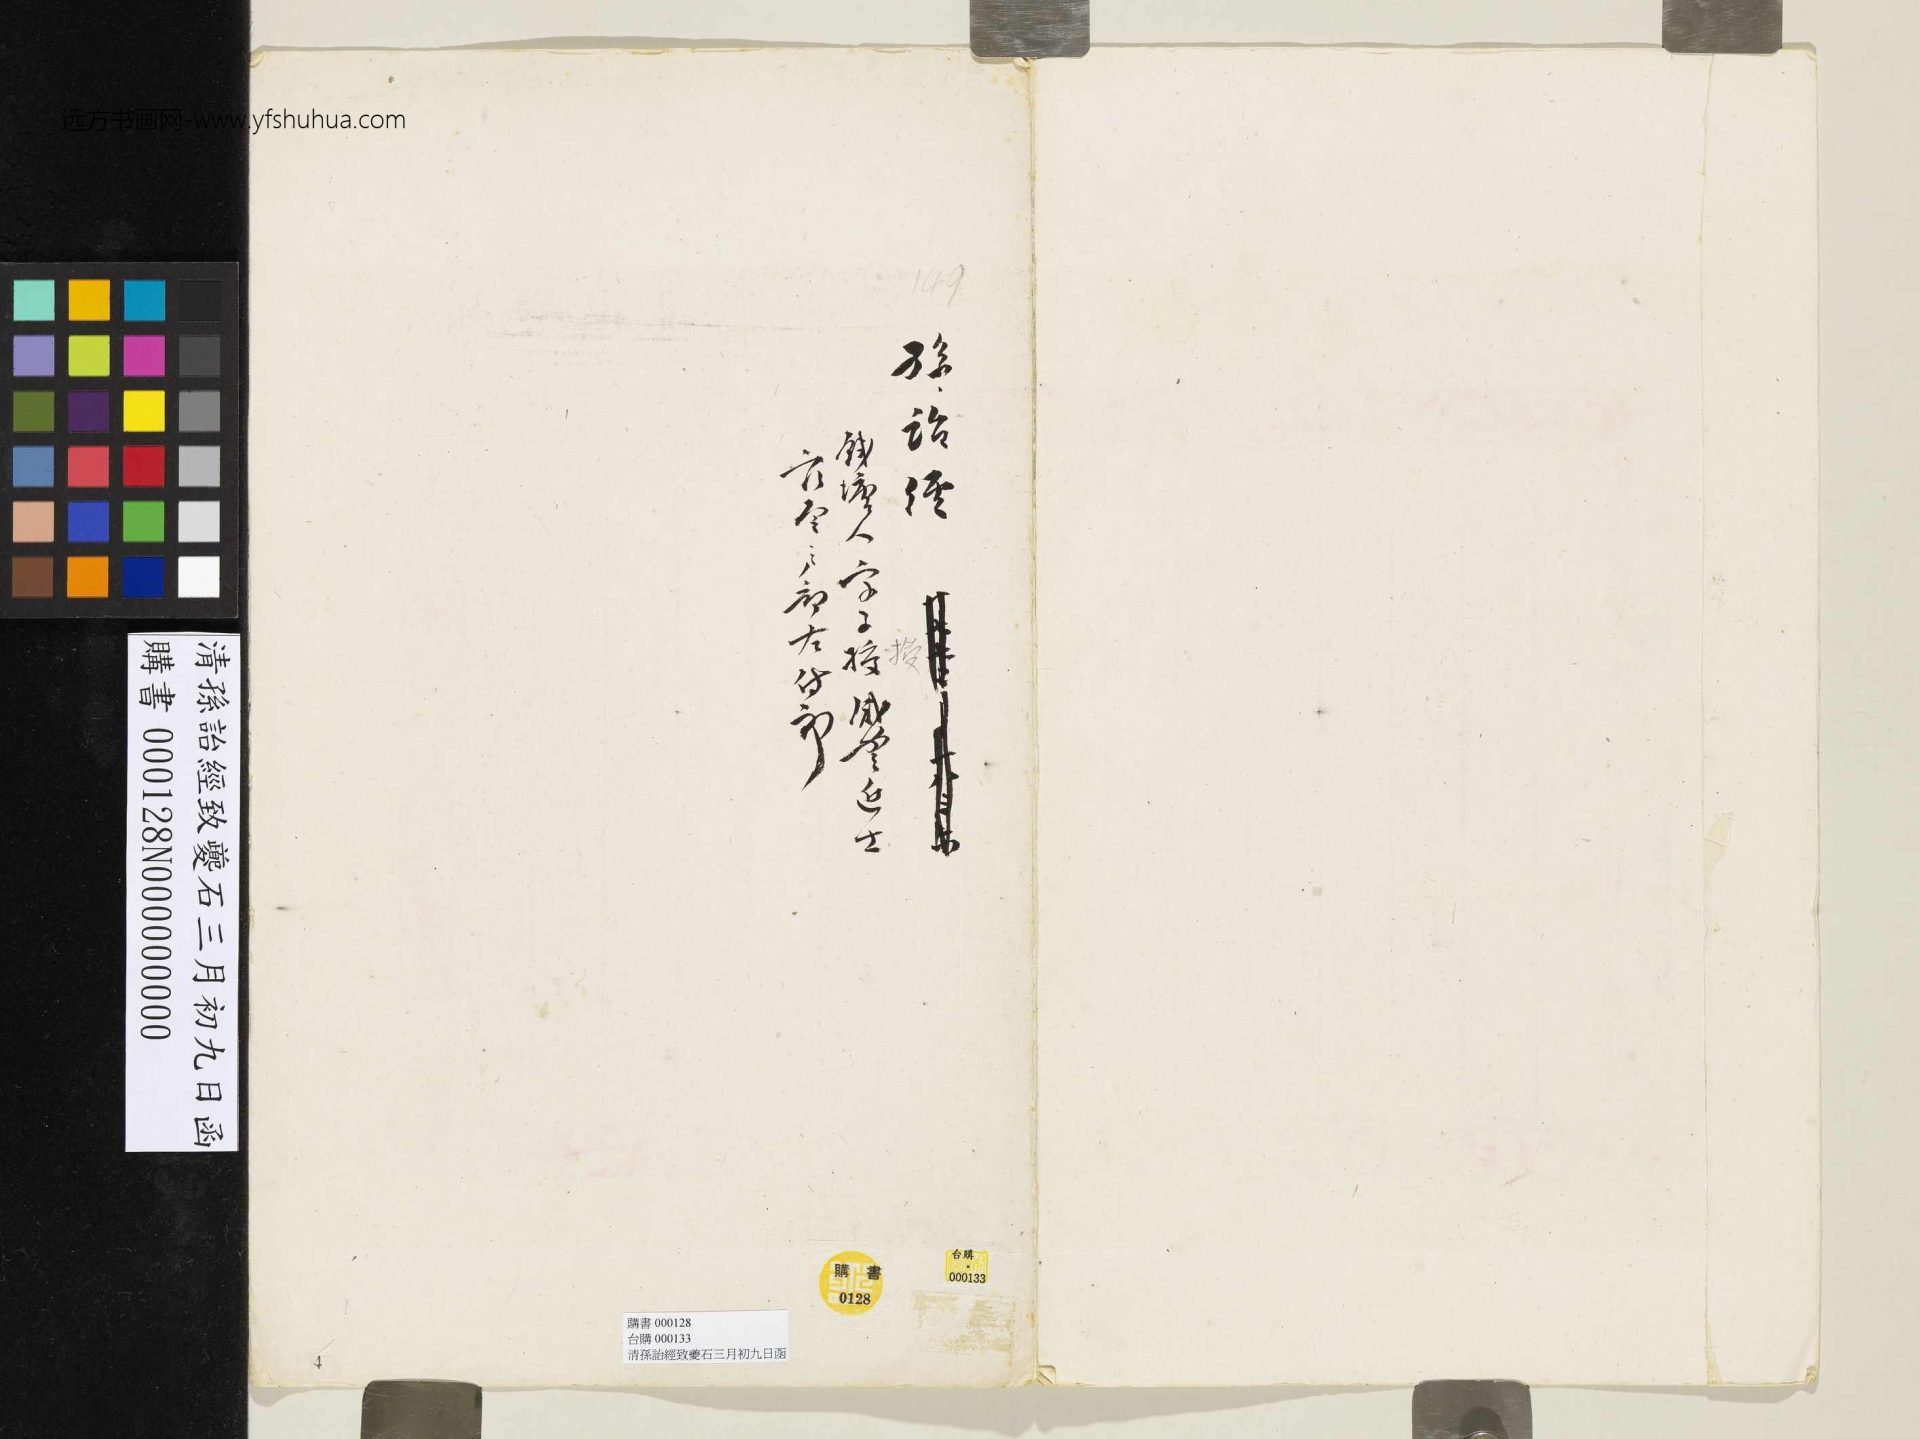 远方书画网-www.yfshuhua.com
149
孫詒經
錢塘人字子授咸豐進士
官至戶部左侍郎
授
清孫詒經致夔石三月初九日函
購書 000128N000000000
購書
0128
台購
000133
購書 000128
台購 000133
清孫詒經致夔石三月初九日函
4